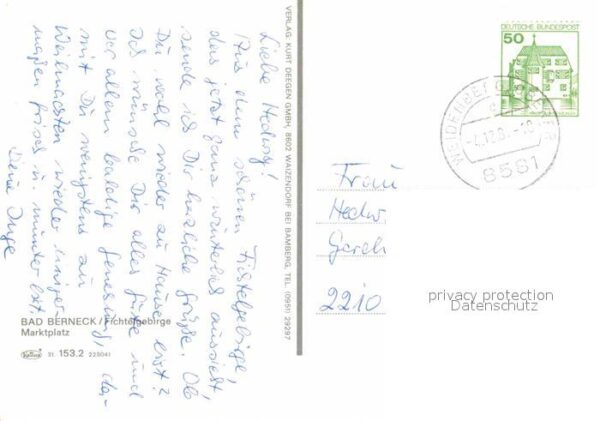 Liebe Hedwig!
Aus dem schönen Fichtelgebirge,
das jetzt ganz winterlich aussieht,
sende ich Dir herzliche Grüße. Ob
Du wohl wieder zu Hause bist?
Ich wünsche Dir alles Gute und
vor allem baldige Genesung, da-
mit Du wenigstens zu
Weihnachten wieder einiger-
maßen frisch u. munter bist.
Deine Inge
BAD BERNECK / Fichtelgebirge
Marktplatz
31 153.2 225041
VERLAG: KURT DEEGEN GMBH, 8602 WAIZENDORF BEI BAMBERG, TEL. (0951) 29297
50
DEUTSCHE BUNDESPOST
WEIDENBERG
8581
Frau
Hedw
2210
privacy protection
Datenschutz